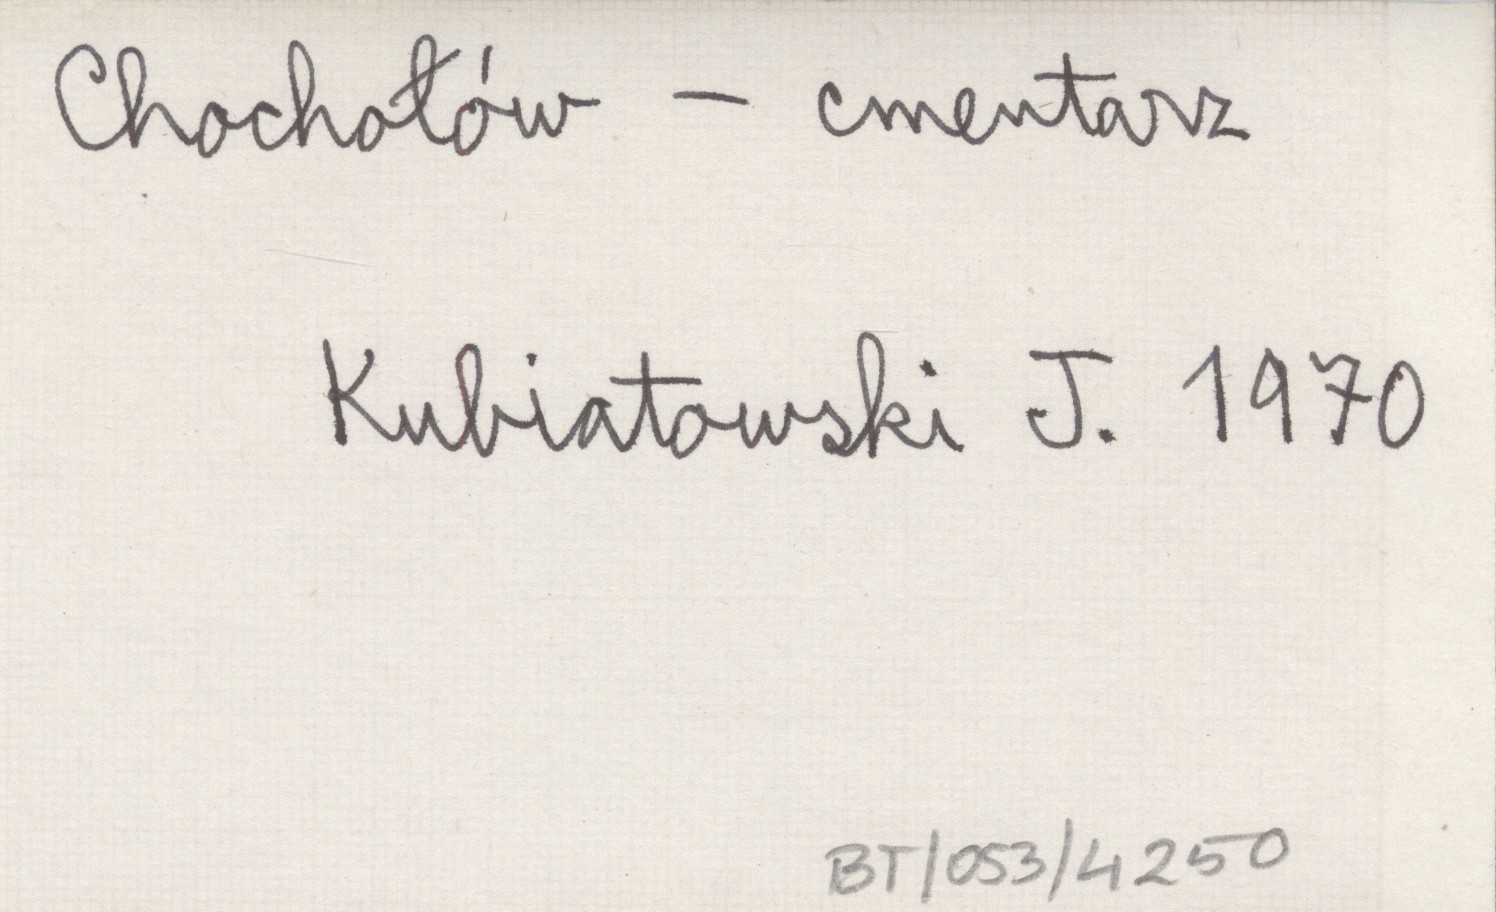 Chochołów – cmentarz
Kubiatowski J. 1970
BT/053/4250